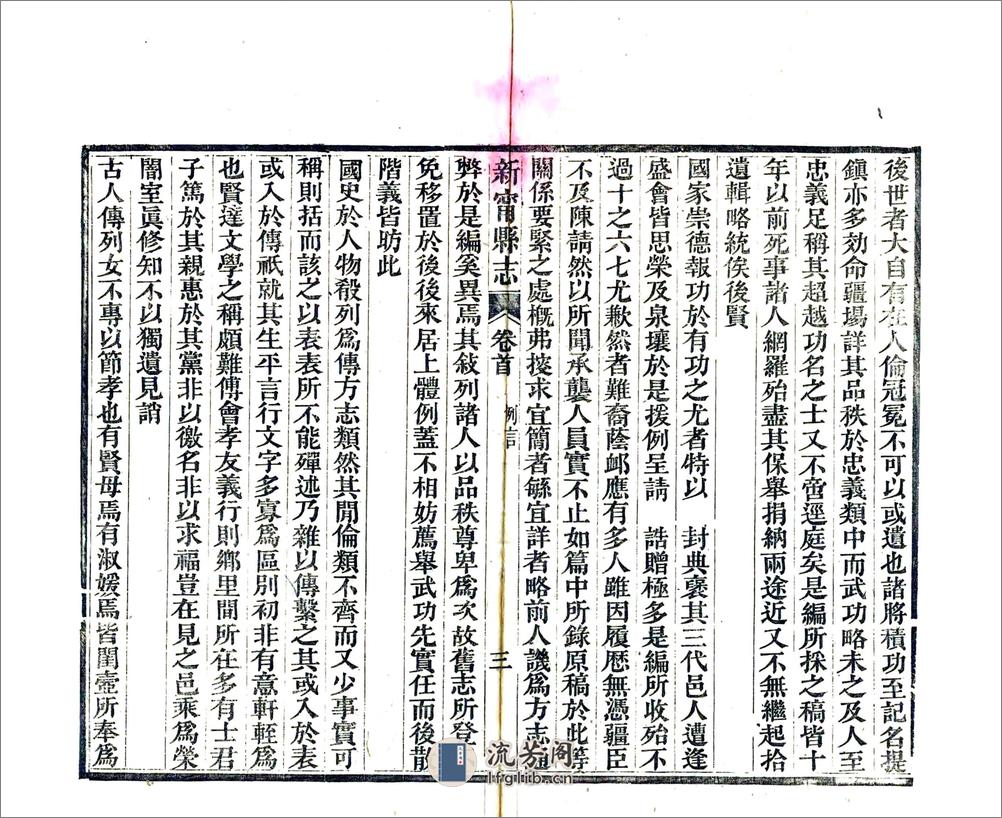 後世者大自有在人倫冠冕不可以或遺也諸將積功至記名提
鎮亦多効命疆場詳其品秩於忠義類中而武功略未之及人至
忠義足稱其超越功名之士又不啻逕庭矣是編所採之稿皆十
年以前死事諸人網羅殆盡其保舉捐納兩途近又不無繼起拾
遺輯略統俟後賢
國家崇德報功於有功之尤者特以 封典襃其三代邑人遭逢
盛會皆思榮及泉壤於是援例呈請 誥贈極多是編所收殆不
過十之六七尤歉然者難裔蔭䘏應有多人雖因履歷無憑疆臣
不及陳請然以所聞承襲人員實不止如篇中所錄原稿於此等
關係要緊之處概弗搜求宜簡者緐宜詳者略前人譏爲方志通
新甯縣志 卷首 例言 三
弊於是編奚異焉其敍列諸人以品秩尊卑爲次故舊志所登
免移置於後後來居上體例蓋不相妨薦舉武功先實任而後散
階義皆坊此
國史於人物殽列爲傳方志類然其閒倫類不齊而又少事實可
稱則括而該之以表表所不能殫述乃雜以傳繫之其或入於表
或入於傳祇就其生平言行文字多寡爲區別初非有意軒輊爲
也賢達文學之稱頗難傅會孝友義行則鄉里閒所在多有士君
子篤於其親惠於其黨非以徼名非以求福豈在見之邑乘爲榮
闇室眞修知不以獨遺見誚
古人傳列女不專以節孝也有賢母焉有淑媛焉皆閨壼所奉爲
流芳阁
lfglib.cn